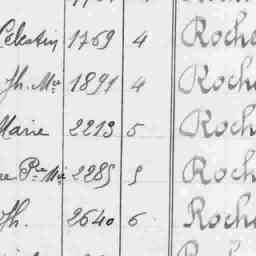 Celestin 1769 4 Roche
Jh. Mie 1891 4 Roche
Marie 2213 5 Roche
Pre Mie 2285 5 Roche
Jh. 2640 6 Roche